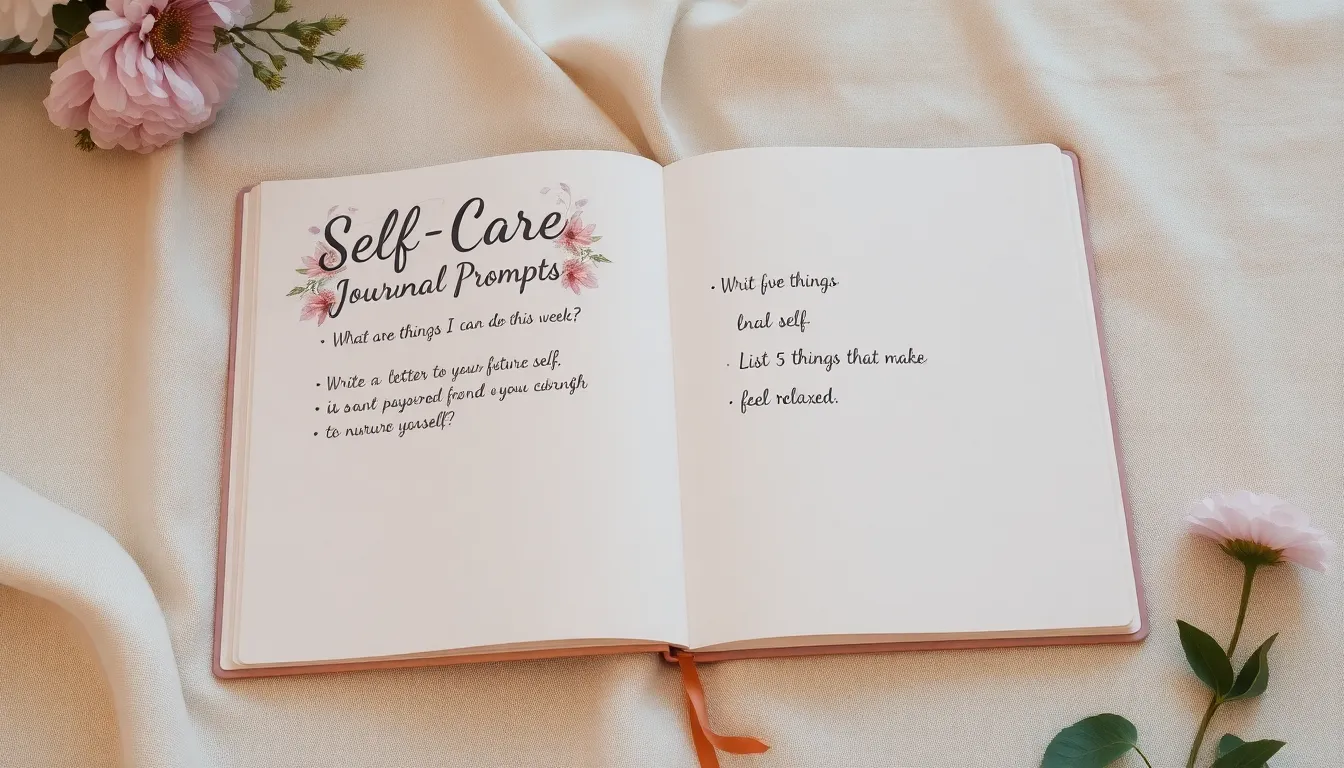 Self-Care
Journal Prompts
• What are things I can do this week?
• Write a letter to your future self.
• is sant payored frend e you
• to nurure yourself?
• Writ five things
lnal self.
• List 5 things that make
• feel relaxed.